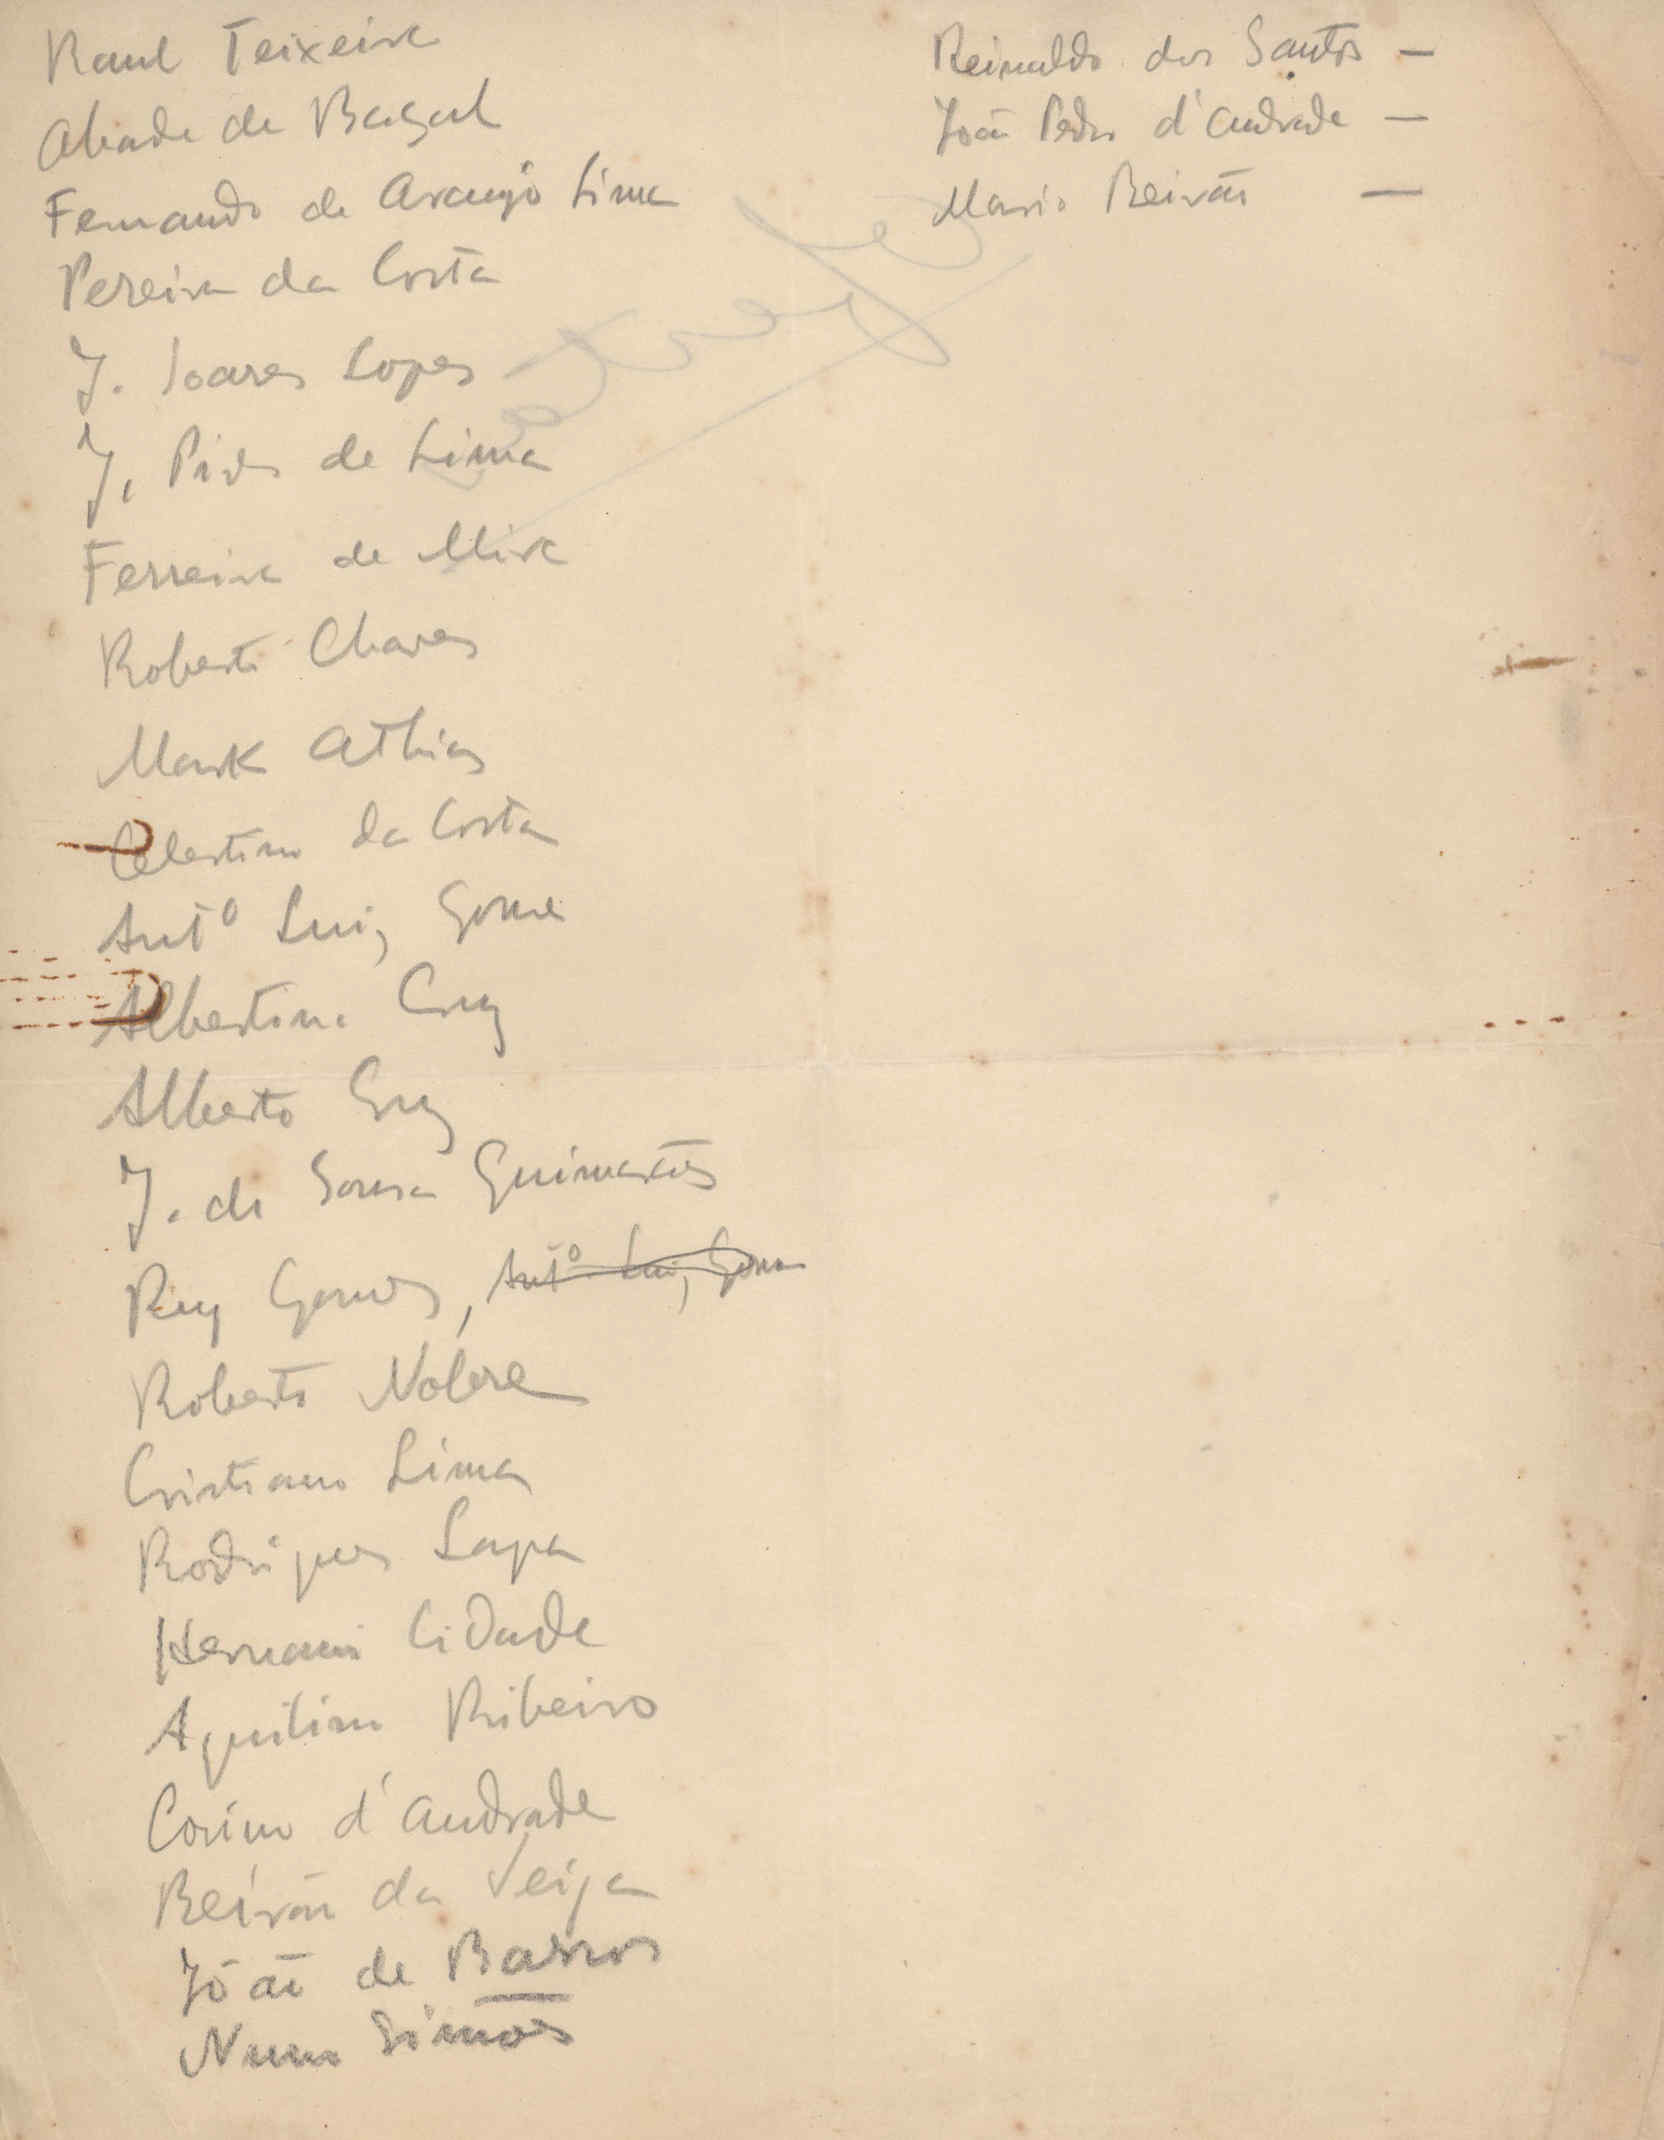 Raul Teixeira
Abade de Baçal
Fernando de Araujo Lima
Pereira da Costa
J. Soares Lopes
J. Pires de Lima
Ferreira de Mira
Roberto Chaves
Mark Athias
Celestino da Costa
Antº Luiz Gomes
Albertino Cruz
Alberto Cruz
J. de Sousa Guimarães
Ruy Gomes, Antº Luiz Gomes
Roberto Nobre
Cristiano Lima
Rodrigues Lapa
Hernani Cidade
Aquilino Ribeiro
Casimo d'Andrade
Beirão da Veiga
João de Barros
Nuno Simões
Reinaldo dos Santos —
João Pedro d'Andrade —
Mario Beirão —